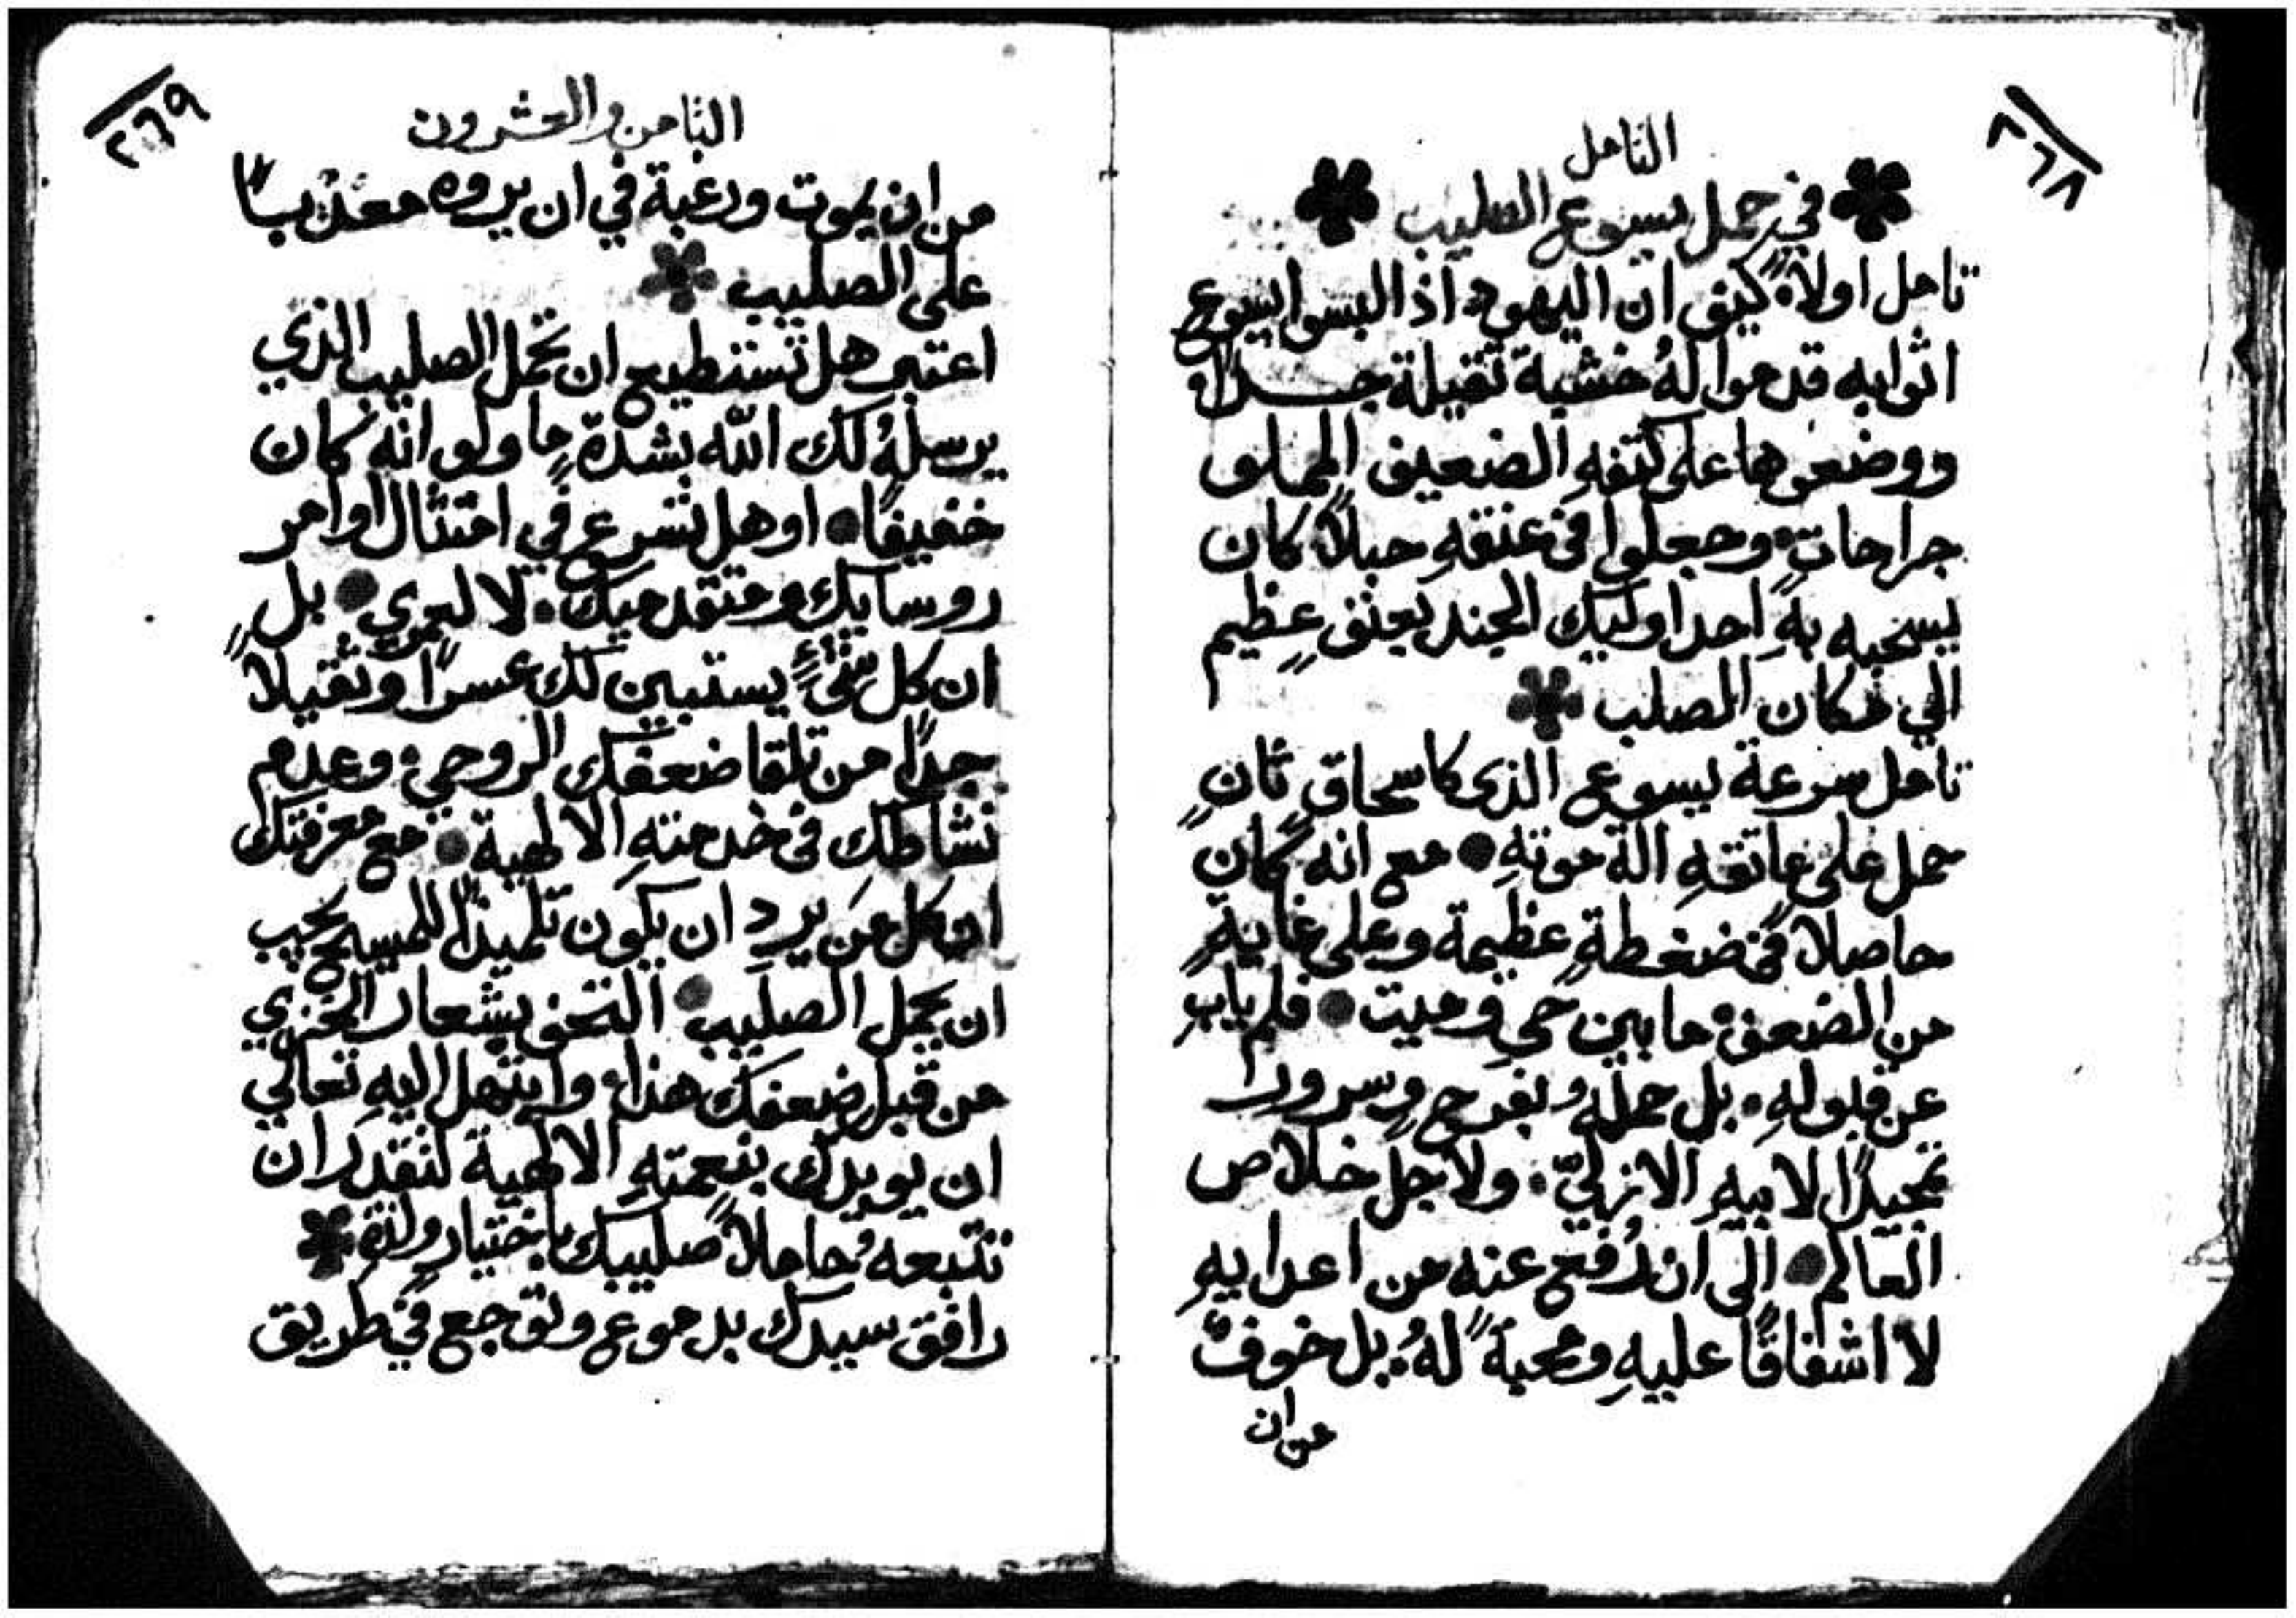 ٢٦٨
التامل
في حمل يسوع الصليب
تامل اولاً كيف ان اليهود اذ البسوا يسوع
اثوابه قدموا لهُ خشبة ثقيلة جدا
ووضعوها على كتفهِ الضعيف المملو
جراحات وجعلوا في عنقهِ حبلاً كان
يسحبه بهِ احد اوليك الجند بعنف عظيم
الي مكان الصلب
تامل سرعة يسوع الذي كاسحاق ثانٍ
حمل على عاتقهِ الة موتهِ مع انه كان
حاصلاً في ضغطةٍ عظيمة وعلى غايةٍ
من الضعف ما بين حي وميت فلم يابِ
عن قبولهِ بل حمله بفرح وسرور
تمجيدًا لابيهِ الازليّ ولاجل خلاص
العالم الى ان رُفع عنه من اعدايهِ
لا اشفاقًا عليهِ ومحبةً لهُ بل خوفً
من ان
٢٦٩
الثامن والعشرون
من ان يموت ورغبة في ان يروه معذبًا
على الصليب
اعتبر هل تستطيع ان تحمل الصليب الذي
يرسلهُ لك الله بشدةٍ ما ولو انهُ كان
خفيفًا او هل تسرع في امتثال اوامر
روسايك ومتقدميك لا لعمري بل
ان كل شيءٍ يستبين لك عسرًا وثقيلاً
جدًا من تلقا ضعفك الروحي وعدم
نشاطك في خدمتهِ الالهية مع معرفتك
ان كل من يرد ان يكون تلميذًا للمسيح يجب
ان يحمل الصليب التحف بشعار الخزي
من قبل ضعفك هذا وابتهل اليهِ تعالي
ان يويدك بنعمتهِ الالهية لتقدر ان
تتبعهُ حاملاً صليبك باختيارٍ ولذةٍ
رافق سيدك بدموع وتوجع في طريق